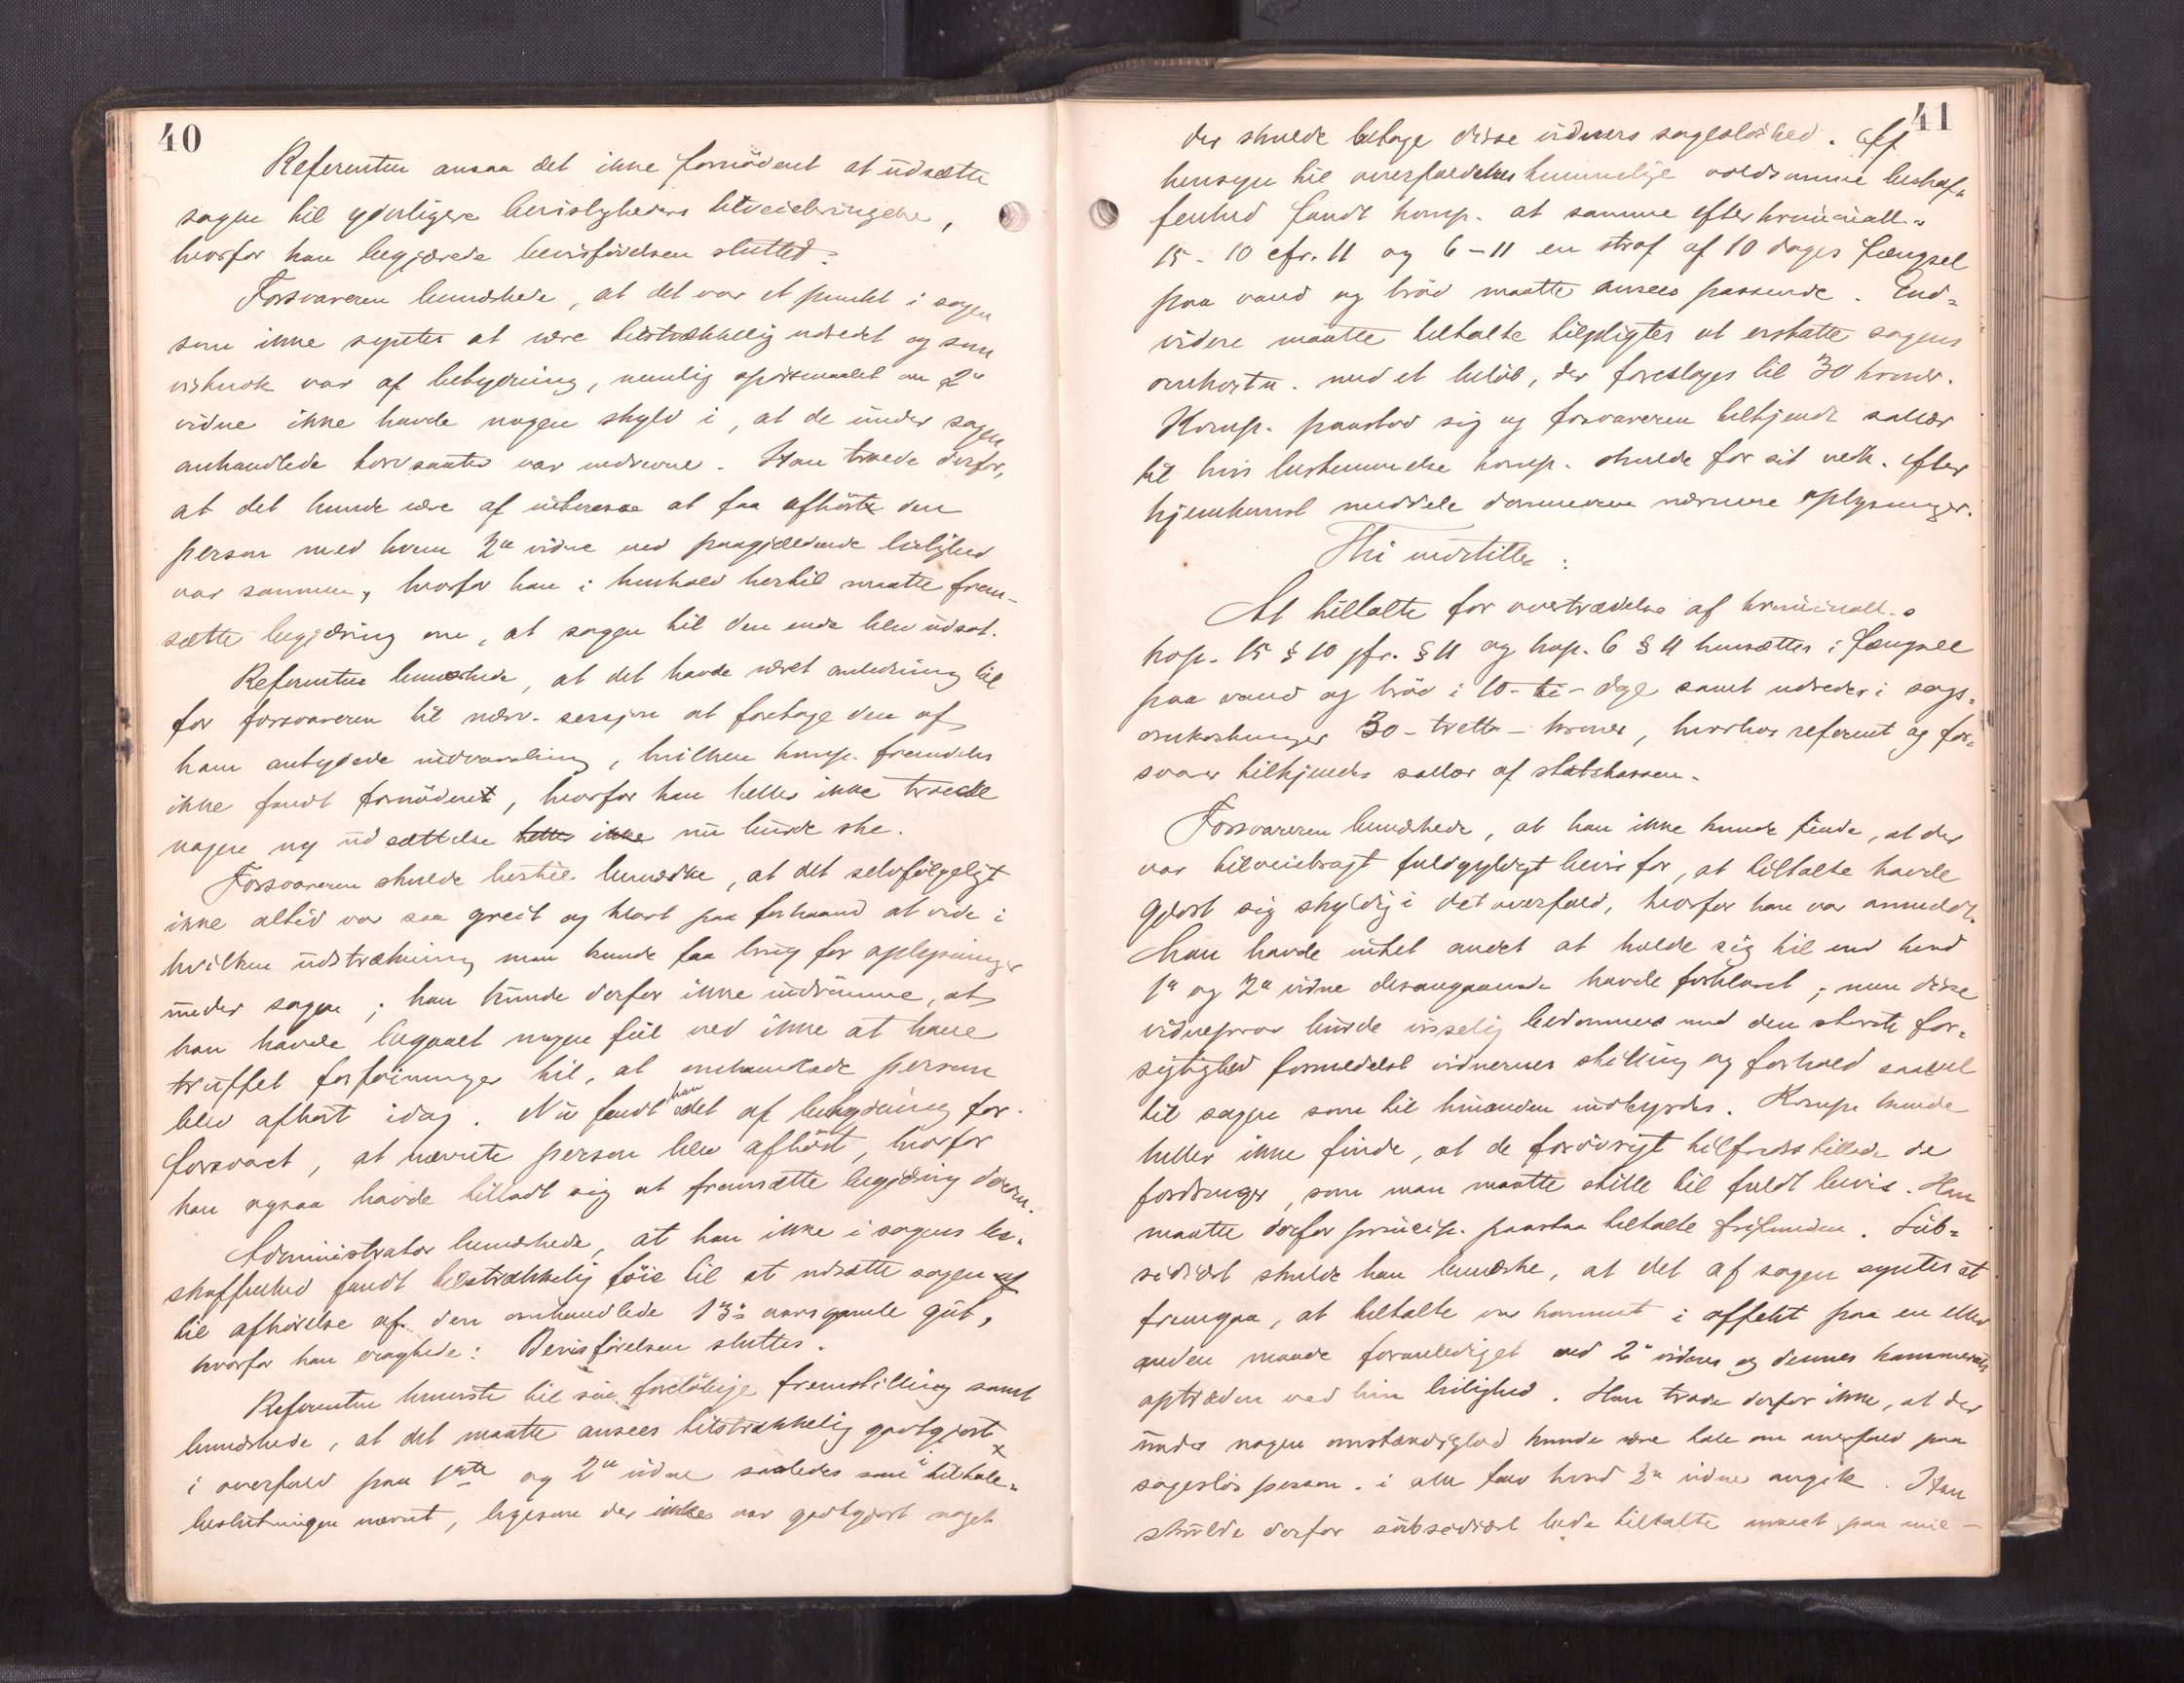 40
Referenten ansaa det ikke fornödent at udsætte
sagen til yderligere bevisligheders tilveiebringelse,
hvorfor han begjærede bevisförelsen sluttet.
Forsvareren bemærkede, at det var et punkt i sagen
som ikke syntes at være tilstrækkelig udredet og som
vistnok var af betydning, nemlig spörsmaalet om 2det
vidne ikke havde nogen skyld i, at de under sagen
omhandlede var . Han troede derfor,
at det kunde være af interesse at faa afhört den
person med hvem 2det vidne ved paagjældende leilighed
var sammen, hvorfor han i henhold hertil maatte frem-
sætte begjæring om, at sagen til den ende blev udsat.
Referenten bemærkede, at det havde været anledning til
for forsvareren til nærv. session at foretage den af
ham antydede indvarsling, hvilken komp. fremdeles
ikke fandt fornödent, hvorfor han heller ikke troede
nogen ny udsættelse heller ikke nu burde ske.
Forsvareren skulde hertil bemærke, at det selvfölgeligt
ikke altid var saa greit og klart paa forhaand at vide i
hvilken udstrækning man kunde faa brug for oplysninger
under sagen; han kunde derfor ikke indrömme, at
han havde begaaet nogen feil ved ikke at have
truffet forföininger til, at omhandlede person
blev afhört idag. Nu fandt han det af betydning for
forsvaret, at nævnte person blev afhört, hvorfor
han ogsaa havde tilladt sig at fremsætte begjæring derom.
Administrator bemærkede, at han ikke i sagens be-
skaffenhed fandt tilstrækkelig föie til at udsætte sagen af
til afhörelse af den omhandlede 13 aarsgamle gut,
hvorfor han eragtede: Bevisförelsen sluttes.
Referenten henviste til sin foreløbige fremstilling samt
bemærkede, at det maatte ansees tilstrækkelig godtgjort x
i overfald paa 1ste og 2det vidne saaledes som i tiltale-
beslutningen nævnt, ligesom der ikke var godtgjort noget
41
der skulde betage disse vidners sageslöshed. Af
hensyn til overfaldets voldsomme beskaf-
fenhed fandt komp. at samme efter kriminall.s
15-10 cfr. 11 og 6-11 en straf af 10 dages fængsel
paa vand og bröd maatte ansees passende. End-
videre maatte tiltalte tilpligtes at erstatte sagens
omkostn. med et belöb, der foreslages til 30 kroner.
Komp. paastod sig og forsvareren tilkjendt salær
til hvis bestemmelse komp. skulde for sit vedk. efter
hjemkomst meddele dommeren nærmere oplysninger.
Thi indstilles:
At tiltalte for overtrædelse af kriminall.s
kap. 15 § 10 jfr. § 11 og kap. 6 § 11 hensættes i fængsel
paa vand og bröd i 10-ti-dage samt udreder i sags-
omkostninger 30-tretti-kroner, hvorhos referent og for-
svarer tilkjendes salær af statskassen.
Forsvareren bemærkede, at han ikke kunde finde, at der
var tilveiebragt fuldgyldigt bevis for, at tiltalte havde
gjort sig skyldig i det overfald, hvorfor han var anmeldt.
Man havde intet andet at holde sig til end hvad
1ste og 2det vidne desangaaende havde forklaret; men disse
vidneprov burde visselig bedömmes med den störste for-
sigtighed formedelst vidnernes stilling og forhold saavel
til sagen som til hinanden indbyrdes. Komp. kunde
heller ikke finde, at de forövrigt tilfredsstillede de
fordringer, som man maatte stille til fuldt bevis. Han
maatte derfor princip. paastaa tiltalte frifunden. Sub-
sidiært skulde han bemærke, at det af sagen syntes at
fremgaa, at tiltalte var kommet i affekt paa en eller
anden maade foranlediget ved 2det vidnes og dennes kammerats
optræden ved hin leilighed. Han troede derfor ikke, at der
under nogen omstændighed kunde være tale om overfald paa
sageslös person, i alle fald hvad 2det vidne angik. Han
skulde derfor subsidiært bede tiltalte anseet paa mil-